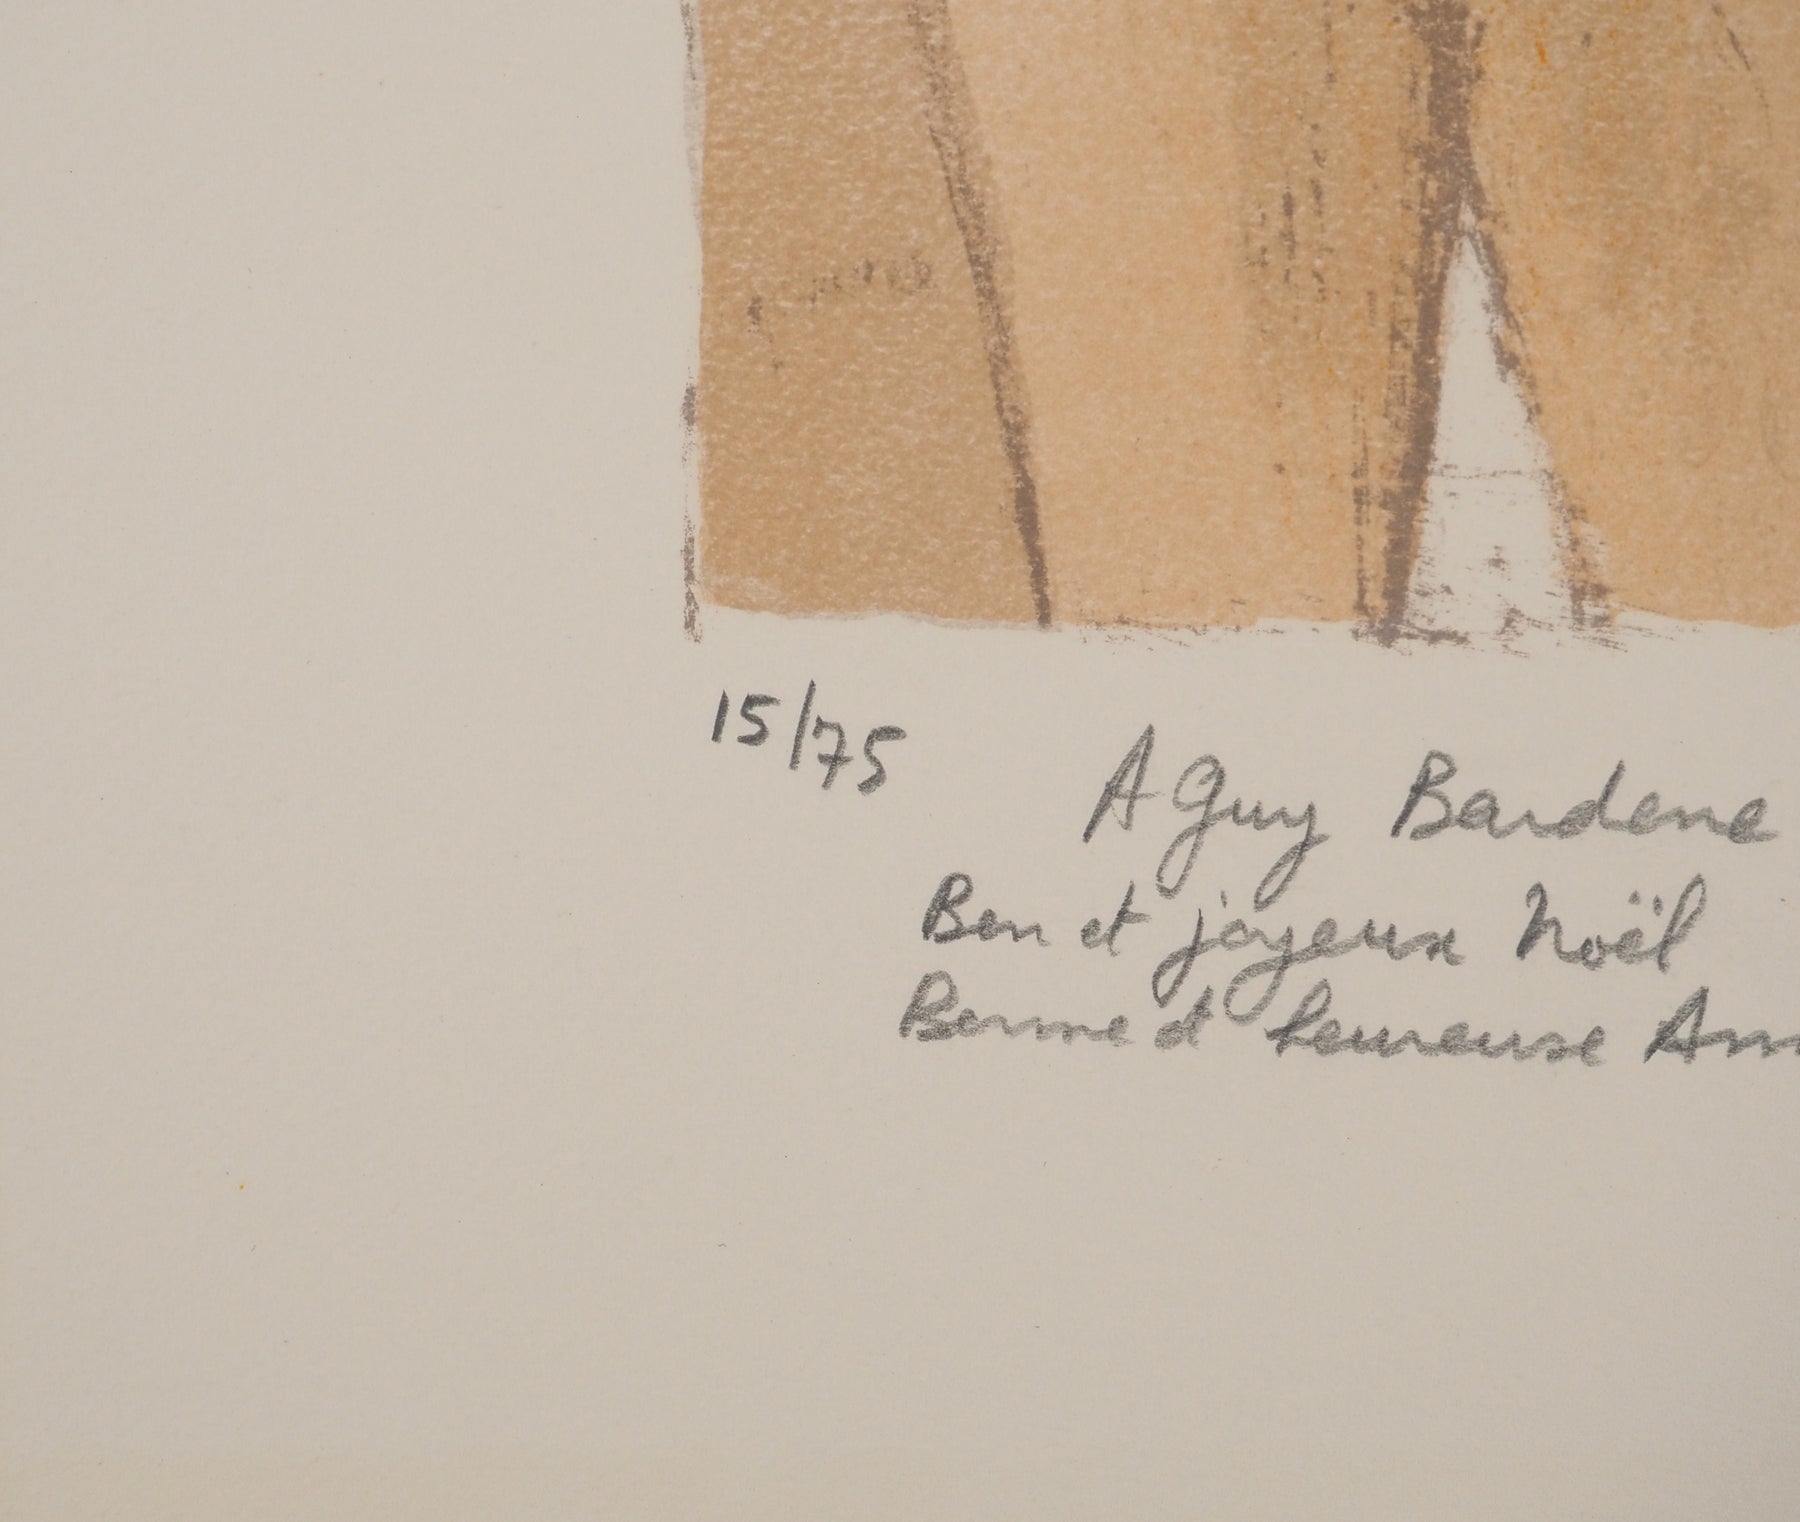 15/75
A Guy Bardone
Bon et joyeux Noël
Bonne et heureuse Ann